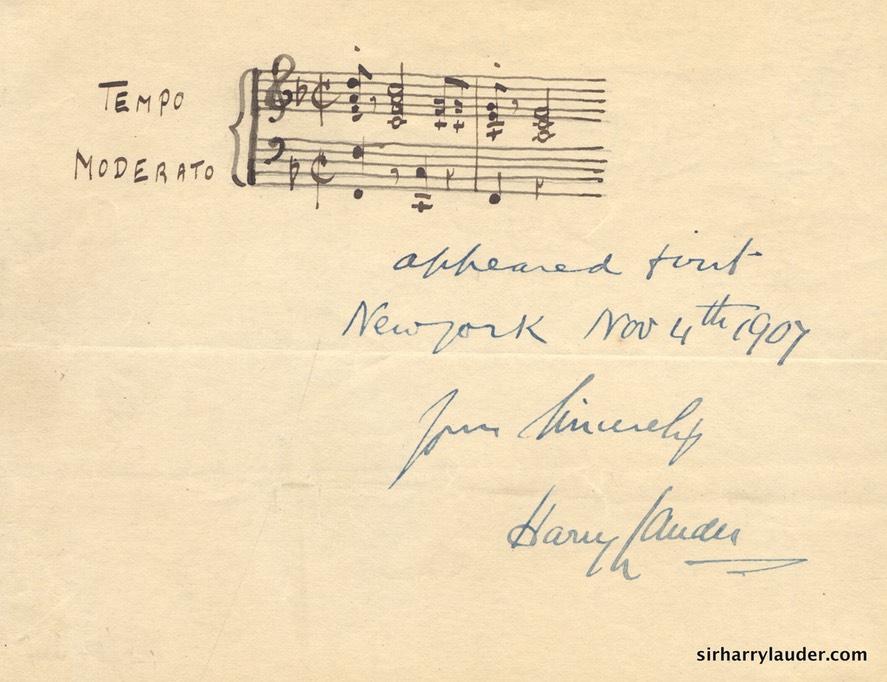 TEMPO
MODERATO
appeared first
New york Nov 4th 1907
yours Sincerely
Harry Lauder
sirharrylauder.com